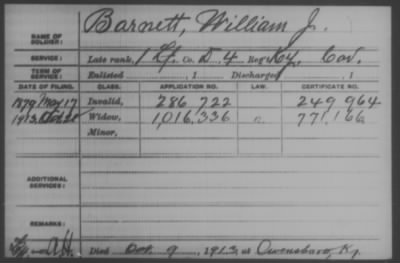 NAME OF SOLDIER: Barnett, William J.
SERVICE: Late rank, 1 Lt. Co. D 4 Reg't Ky. Cav.
TERM OF SERVICE: Enlisted , 1 Discharged , 1
DATE OF FILING. CLASS. APPLICATION NO. LAW. CERTIFICATE NO.
1879 May 17 Invalid, 286 722 249 964
1913 Widow, 1,016,336 771,166
Minor,
ADDITIONAL SERVICES:
REMARKS:
Died Oct. 9, 1913, at Owensboro, Ky.